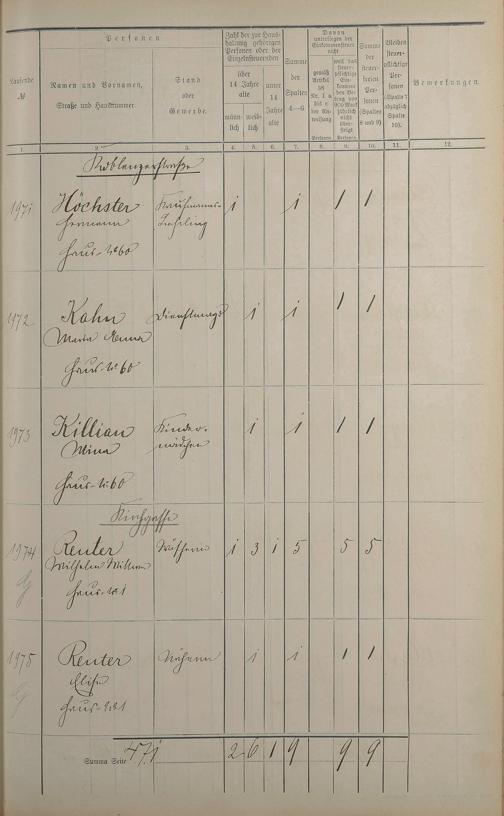 Laufende №
Personen
Namen und Vornamen,
Straße und Hausnummer.
Stand
oder
Gewerbe.
Zahl der zur Haus-
haltung gehörigen
Personen oder der
Einzelnsteuernden
über
14 Jahre
alte
unter
14
Jahre
alte
männ-
lich
weib-
lich
Summe
der
Spalten
4—6
Davon
unterliegen der
Einkommensteuer
nicht
Personen
Personen
Summe
der
steuer-
freien
Per-
sonen
(Spalten
8 und 9)
Bleiben
steuer-
pflichtige
Per-
sonen
(Spalte 7
abzüglich
Spalte
10).
Bemerkungen.
1. 2. 3. 4. 5. 6. 7. 8. 9. 10. 11. 12.
Koblenzerstraße
1971 Höchster Kaufmanns- 1 1 1 1
Hermann Lehrling
Haus-№ 60
1972 Kahn Dienstmagd 1 1 1 1
Maria Anna
Haus-№ 60
1973 Killian Kinder- 1 1 1 1
Mina mädchen
Haus-№ 60
Kirchgasse
1974 Reuter 1 3 1 5 5 5
Wilhelm
Haus-№ 1
1975 Reuter Näherin 1 1 1 1
Elise
Haus-№ 1
Summa Seite 471 2 6 1 9 9 9